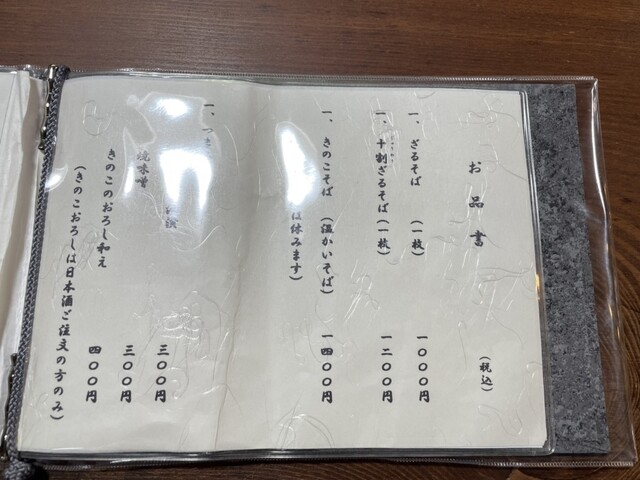 お品書 (税込)
一、ざるそば (一枚) 一〇〇〇円
一、十割ざるそば (一枚) 一二〇〇円
一、きのこそば (温かいそば) 一四〇〇円
は休みます)
一、つき
三〇〇円
焼味噌 三〇〇円
きのこのおろし和え 四〇〇円
(きのこおろしは日本酒ど注文の方のみ)